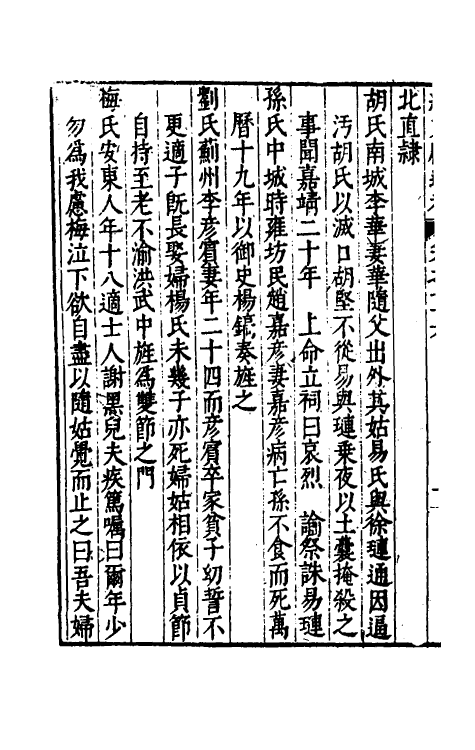 北直隸
胡氏南城李華妻華隨父出外其姑易氏與徐璉通因逼
汚胡氏以滅口胡堅不從易與璉乗夜以土囊掩殺之
事聞嘉靖二十年 上命立祠曰哀烈 諭祭誅易璉
孫氏中城時雍坊民趙嘉彦妻嘉彦病亡孫不食而死萬
曆十九年以御史楊鎬奏旌之
劉氏薊州李彦賓妻年二十四而彦賓卒家貧子幼誓不
更適子旣長娶婦楊氏未幾子亦死婦姑相依以貞節
自持至老不渝洪武中旌爲雙節之門
梅氏安東人年十八適士人謝黑兒夫疾篤囑曰爾年少
勿爲我慮梅泣下欲自盡以隨姑覺而止之曰吾夫婦